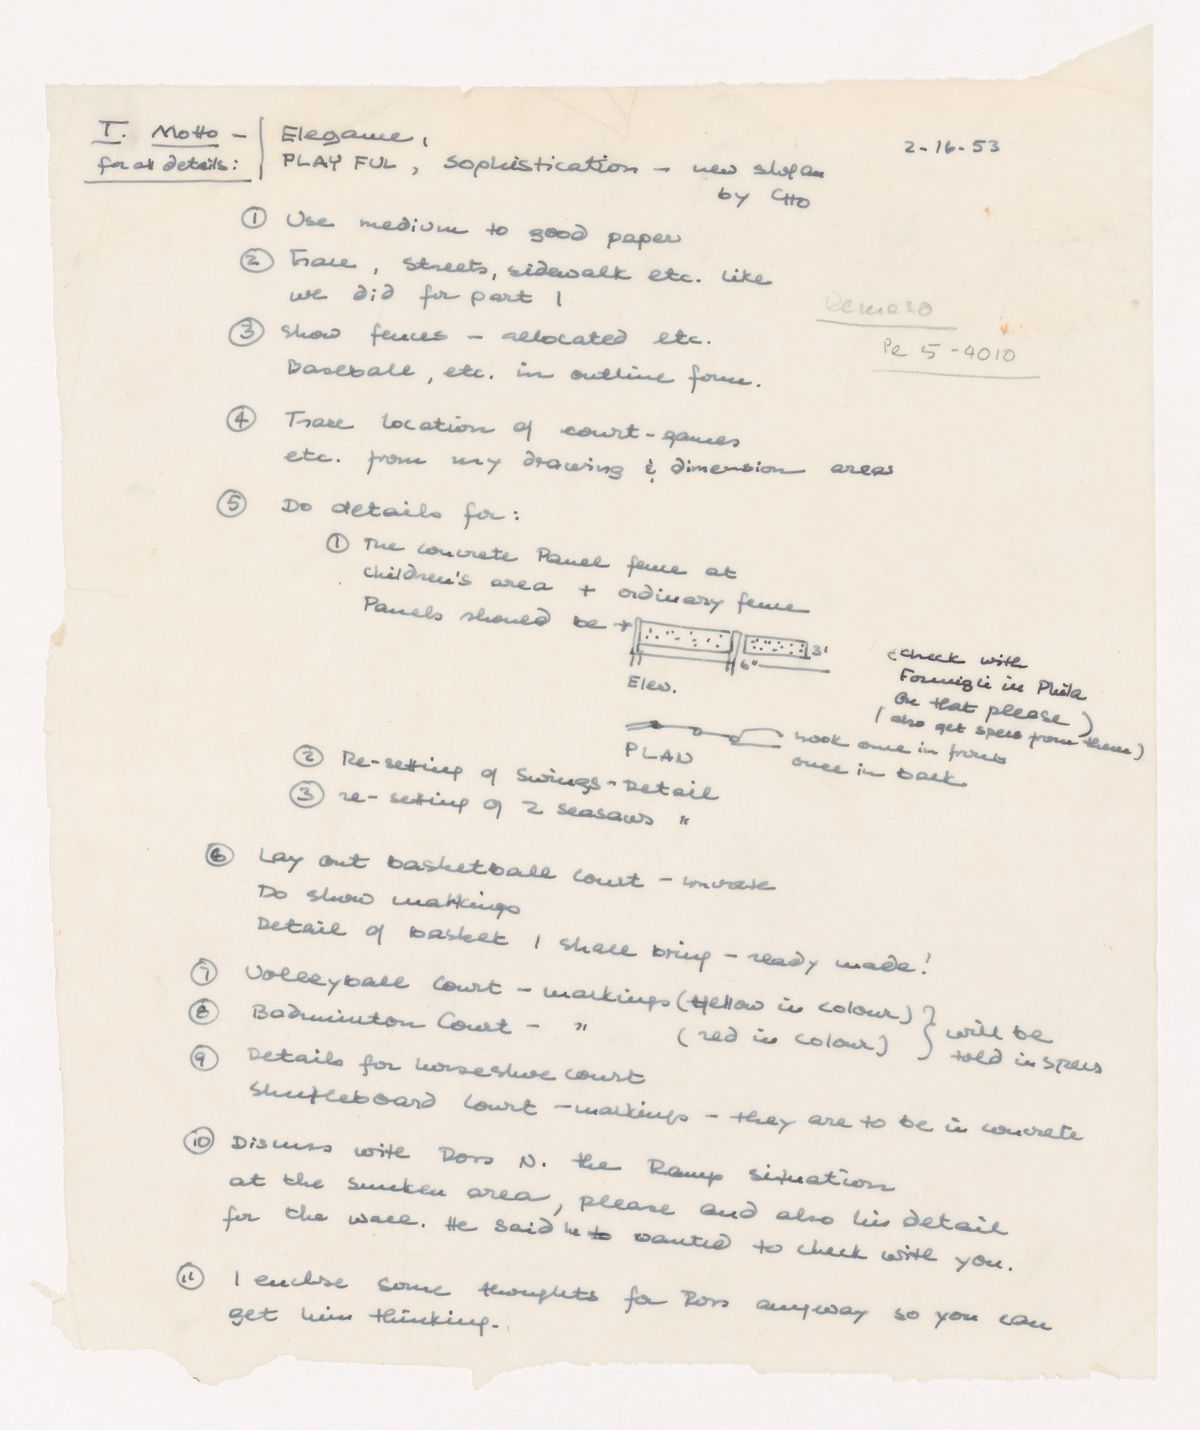 I. Motto -
for all details:
Elegance,
PLAYFUL, Sophistication - new slogan
by CHO
2-16-53
① Use medium to good paper
② Trace, streets, sidewalk etc. like
we did for part 1
Pe 5-4010
③ Show fences - allocated etc.
Baseball, etc. in outline form.
④ Trace location of court-games
etc. from my drawing & dimension areas
⑤ Do details for:
① The concrete Panel fence at
children's area + ordinary fence
Panels should be
3'
6"
Elev.
(check with
Formigli in Phila
on that please)
(also get specs from them)
PLAN
hook once in front
once in back
② Re-setting of Swings - Detail
③ re-setting of 2 seasaws "
⑥ Lay out basketball court - concrete
Do show markings
Detail of basket I shall bring - ready made!
⑦ Volleyball Court - markings (Yellow in colour)
⑧ Badminton Court - " (red in colour)
} will be
told in specs
⑨ Details for horseshoe court
Shuffleboard court - markings - they are to be in concrete
⑩ Discuss with Ross N. the Ramp situation
at the sunken area, please and also his detail
for the wall. He said he to wanted to check with you.
⑪ I enclose some thoughts for Ross anyway so you can
get him thinking.